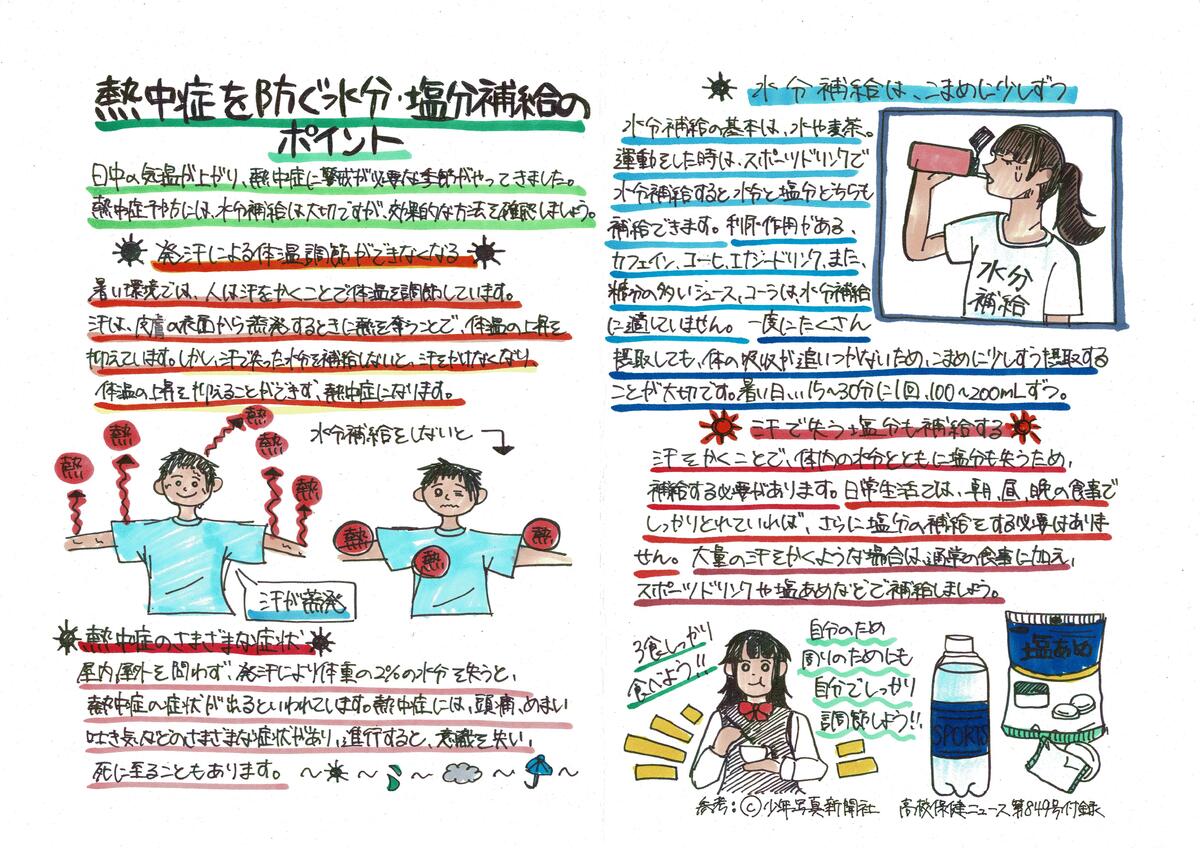 熱中症を防ぐ水分・塩分補給の
ポイント
日中の気温が上がり、熱中症に警戒が必要な季節がやってきました。
熱中症予防には、水分補給は大切ですが、効果的な方法を確認しましょう。
発汗による体温調節ができなくなる
暑い環境では、人は汗をかくことで体温を調節しています。
汗は、皮膚の表面から蒸発するときに熱を奪うことで、体温の上昇を
抑えています。しかし、汗で失った水分を補給しないと、汗をかけなくなり
体温の上昇を抑えることができず、熱中症になります。
熱
熱
熱
熱
熱
水分補給をしないと
熱
熱
熱
汗が蒸発
熱中症のさまざまな症状
屋内屋外を問わず、発汗により体重の2%の水分を失うと、
熱中症の症状が出るといわれています。熱中症には、頭痛、めまい
吐き気などのさまざまな症状があり、進行すると、意識を失い、
死に至ることもあります。
水分補給は、こまめに少しずつ
水分補給の基本は、水や麦茶。
運動をした時は、スポーツドリンクで
水分補給すると水分と塩分どちらも
補給できます。利尿作用がある、
カフェイン、コーヒー、エナジードリンク、また、
糖分の多いジュース、コーラは、水分補給
に適していません。一度にたくさん
摂取しても、体の吸収が追いつかないため、こまめに少しずつ摂取する
ことが大切です。暑い日は、15〜30分に1回、100〜200mLずつ。
水分
補給
汗で失う塩分も補給する
汗をかくことで、体内の水分とともに塩分も失うため、
補給する必要があります。日常生活では、朝、昼、晩の食事で
しっかりとれていれば、さらに塩分の補給をする必要はありま
せん。大量の汗をかくような場合は、通常の食事に加え、
スポーツドリンクや塩あめなどで補給しましょう。
3食しっかり
食べよう!!
自分のため
周りのためにも
自分でしっかり
調節しよう!!
SPORTS
塩あめ
参考:©少年写真新聞社 高校保健ニュース第849号付録